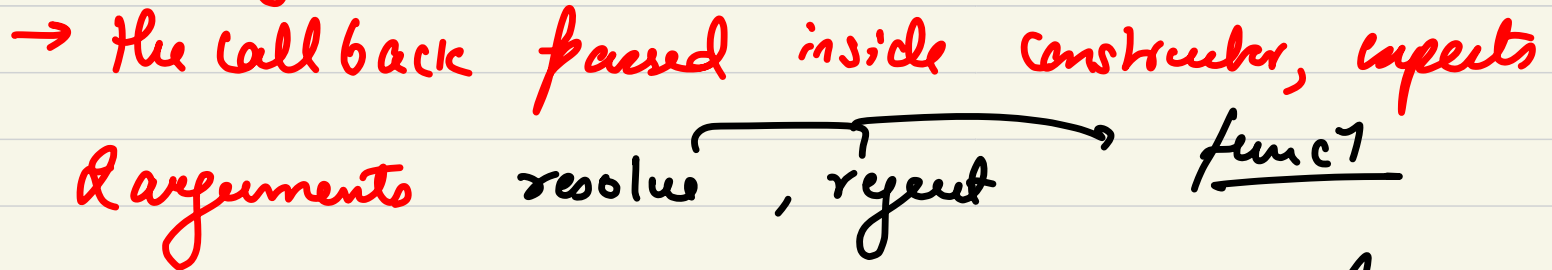 → the callback passed inside constructor, expects
2 arguments resolve , reject → funcⁿ